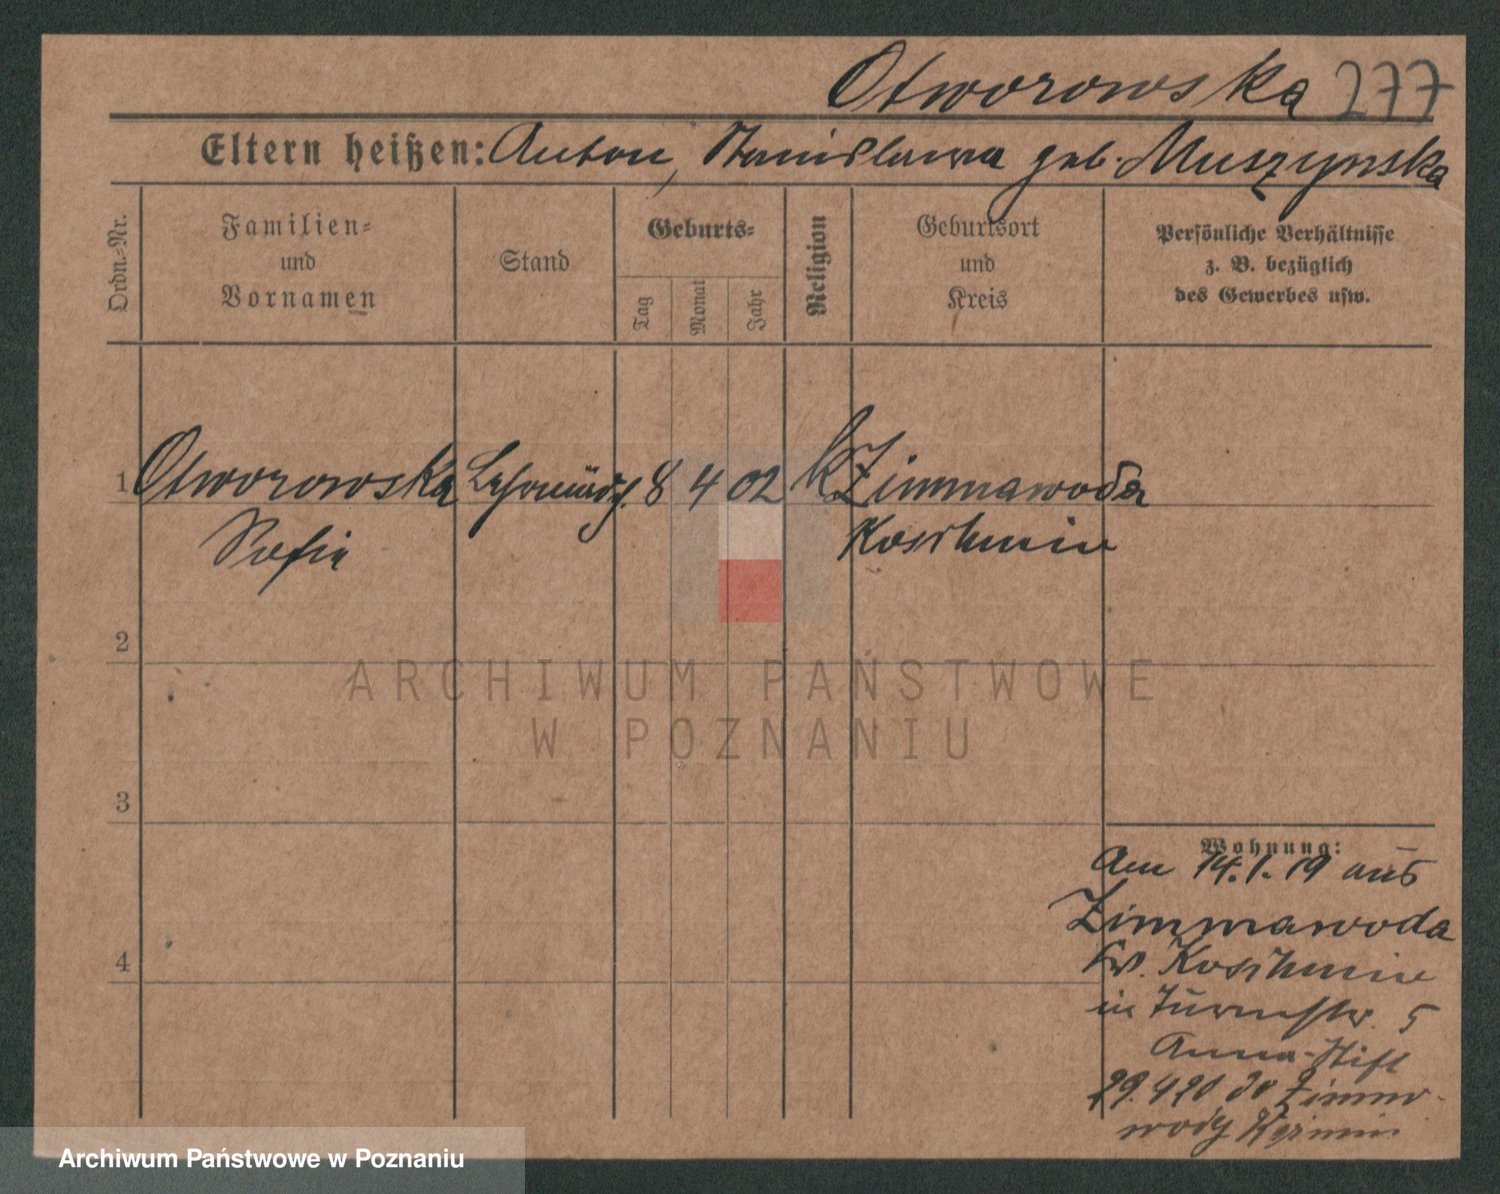 Otworowska 277
Eltern heißen: Anton, Stanislawa geb. Muszynska
Ordn.-Nr.
Familien-
und
Vornamen
Stand
Geburts-
Tag
Monat
Jahr
Religion
Geburtsort
und
Kreis
Persönliche Verhältnisse
z. B. bezüglich
des Gewerbes usw.
1 Otworowska 8 4 02 k Zimnawoda
Sofie Koschmin
2
3
4
Wohnung:
Am 14.1.19 aus
Zimnawoda
Kr. Koschmin
in Turmstr. 5
Anna-Stift
29.4 20 do Zimno-
wody
ARCHIWUM PAŃSTWOWE
W POZNANIU
Archiwum Państwowe w Poznaniu